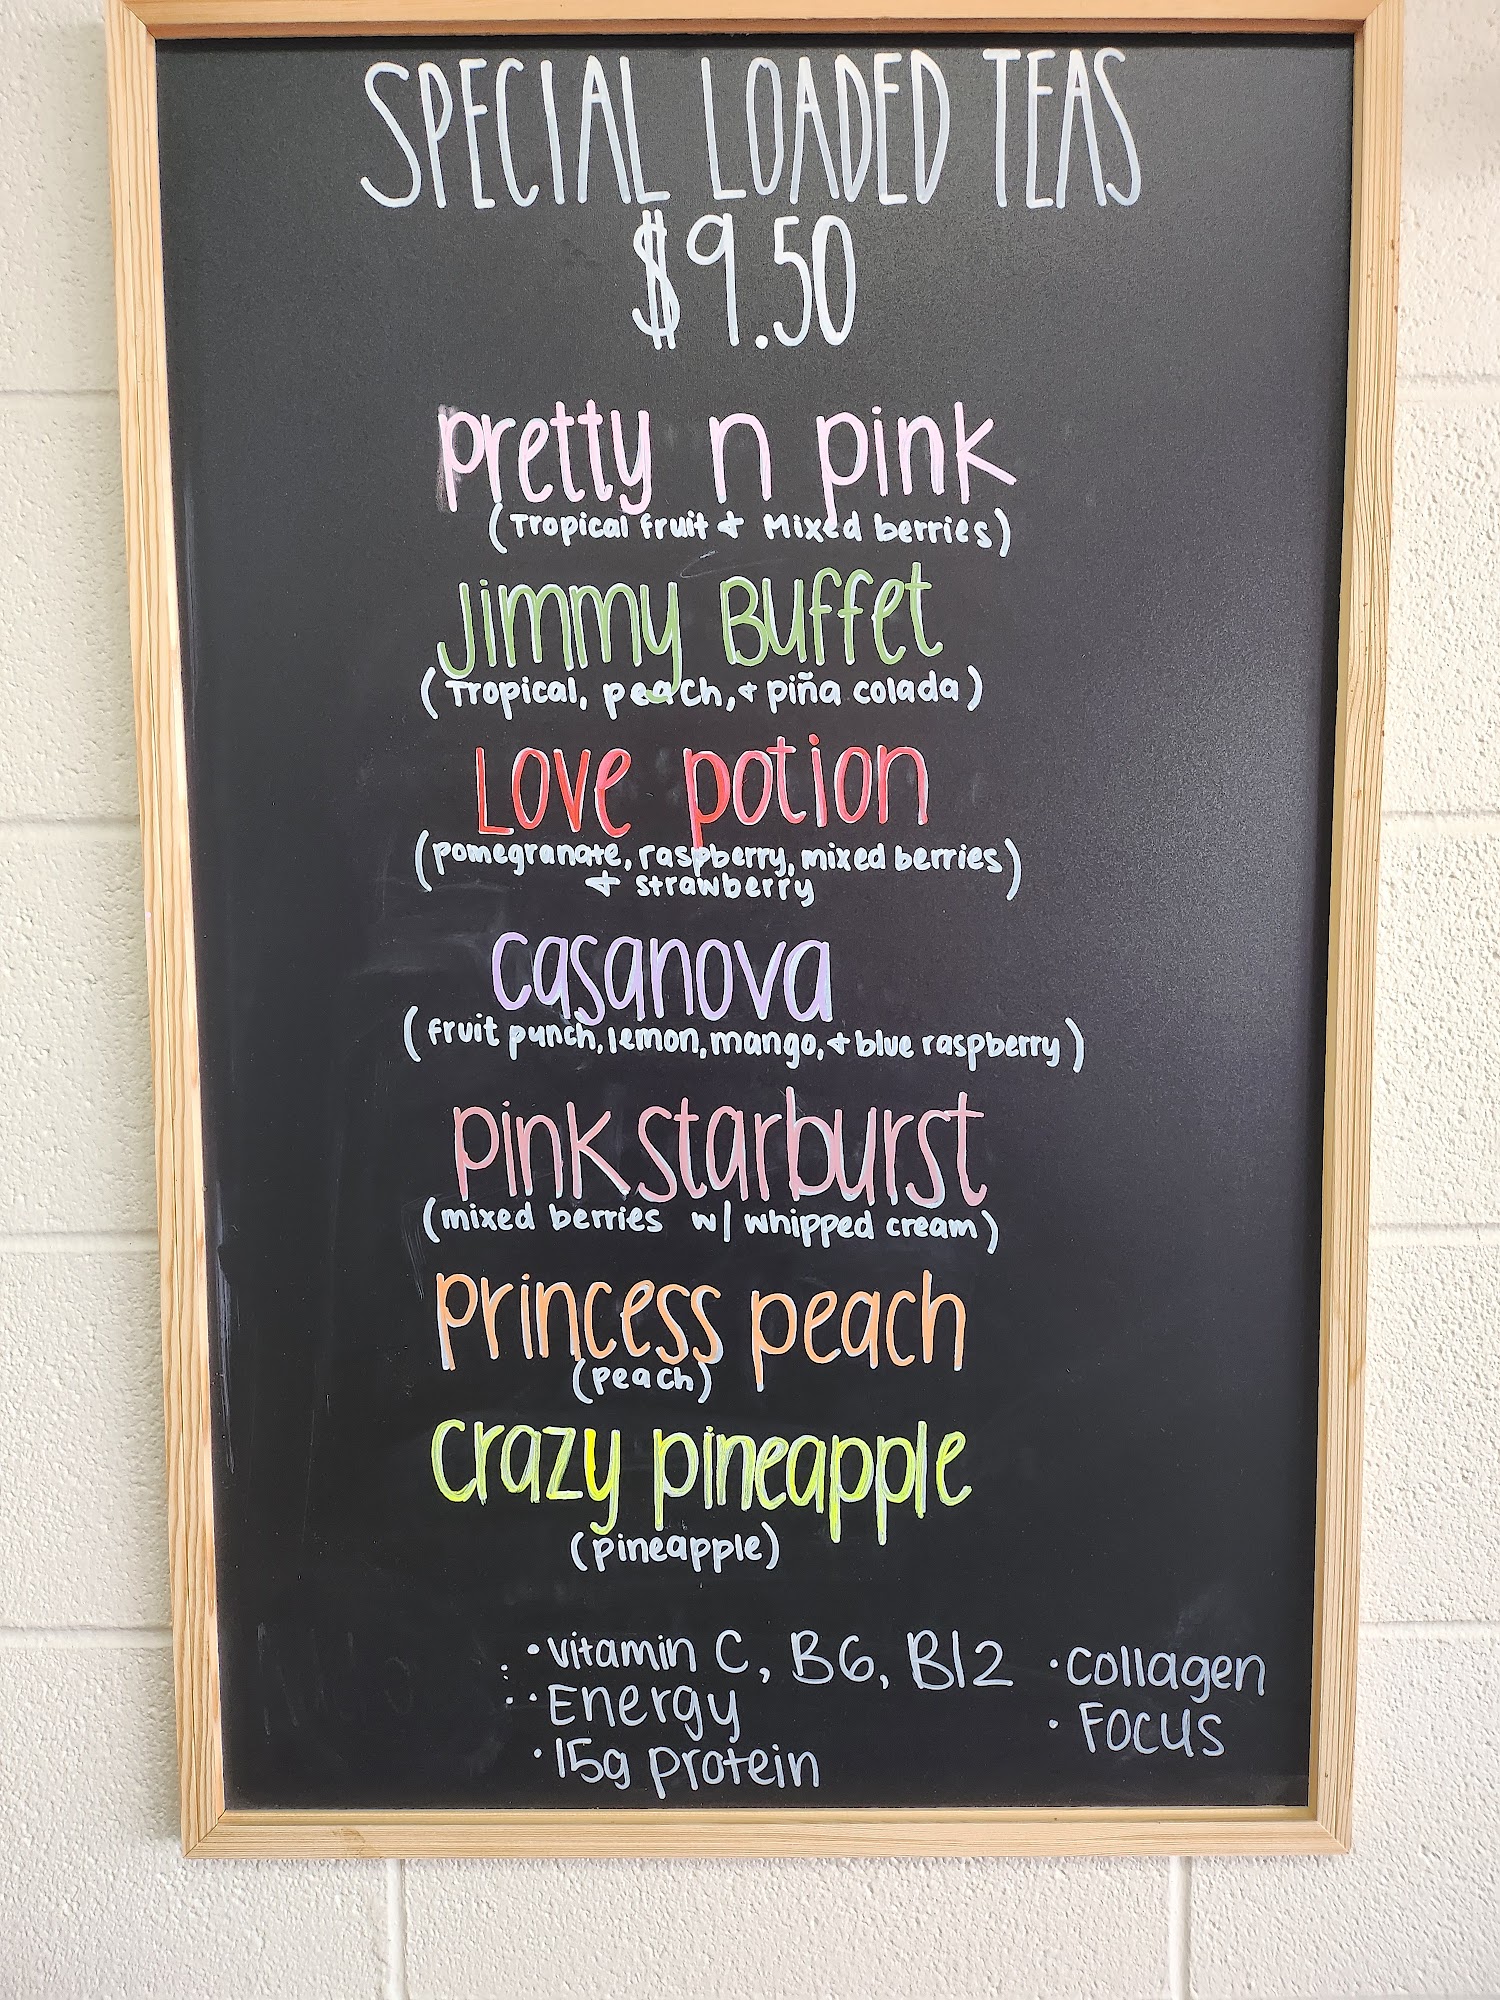 SPECIAL LOADED TEAS
$9.50
Pretty n pink
(Tropical fruit & Mixed berries)
Jimmy Buffet
(Tropical, peach, & piña colada)
Love potion
(pomegranate, raspberry, mixed berries)
& strawberry
Casanova
(fruit punch, lemon, mango, & blue raspberry)
pink starburst
(mixed berries w/ whipped cream)
princess peach
(peach)
Crazy pineapple
(pineapple)
• vitamin C, B6, B12 • Collagen
• Energy • Focus
• 15g protein